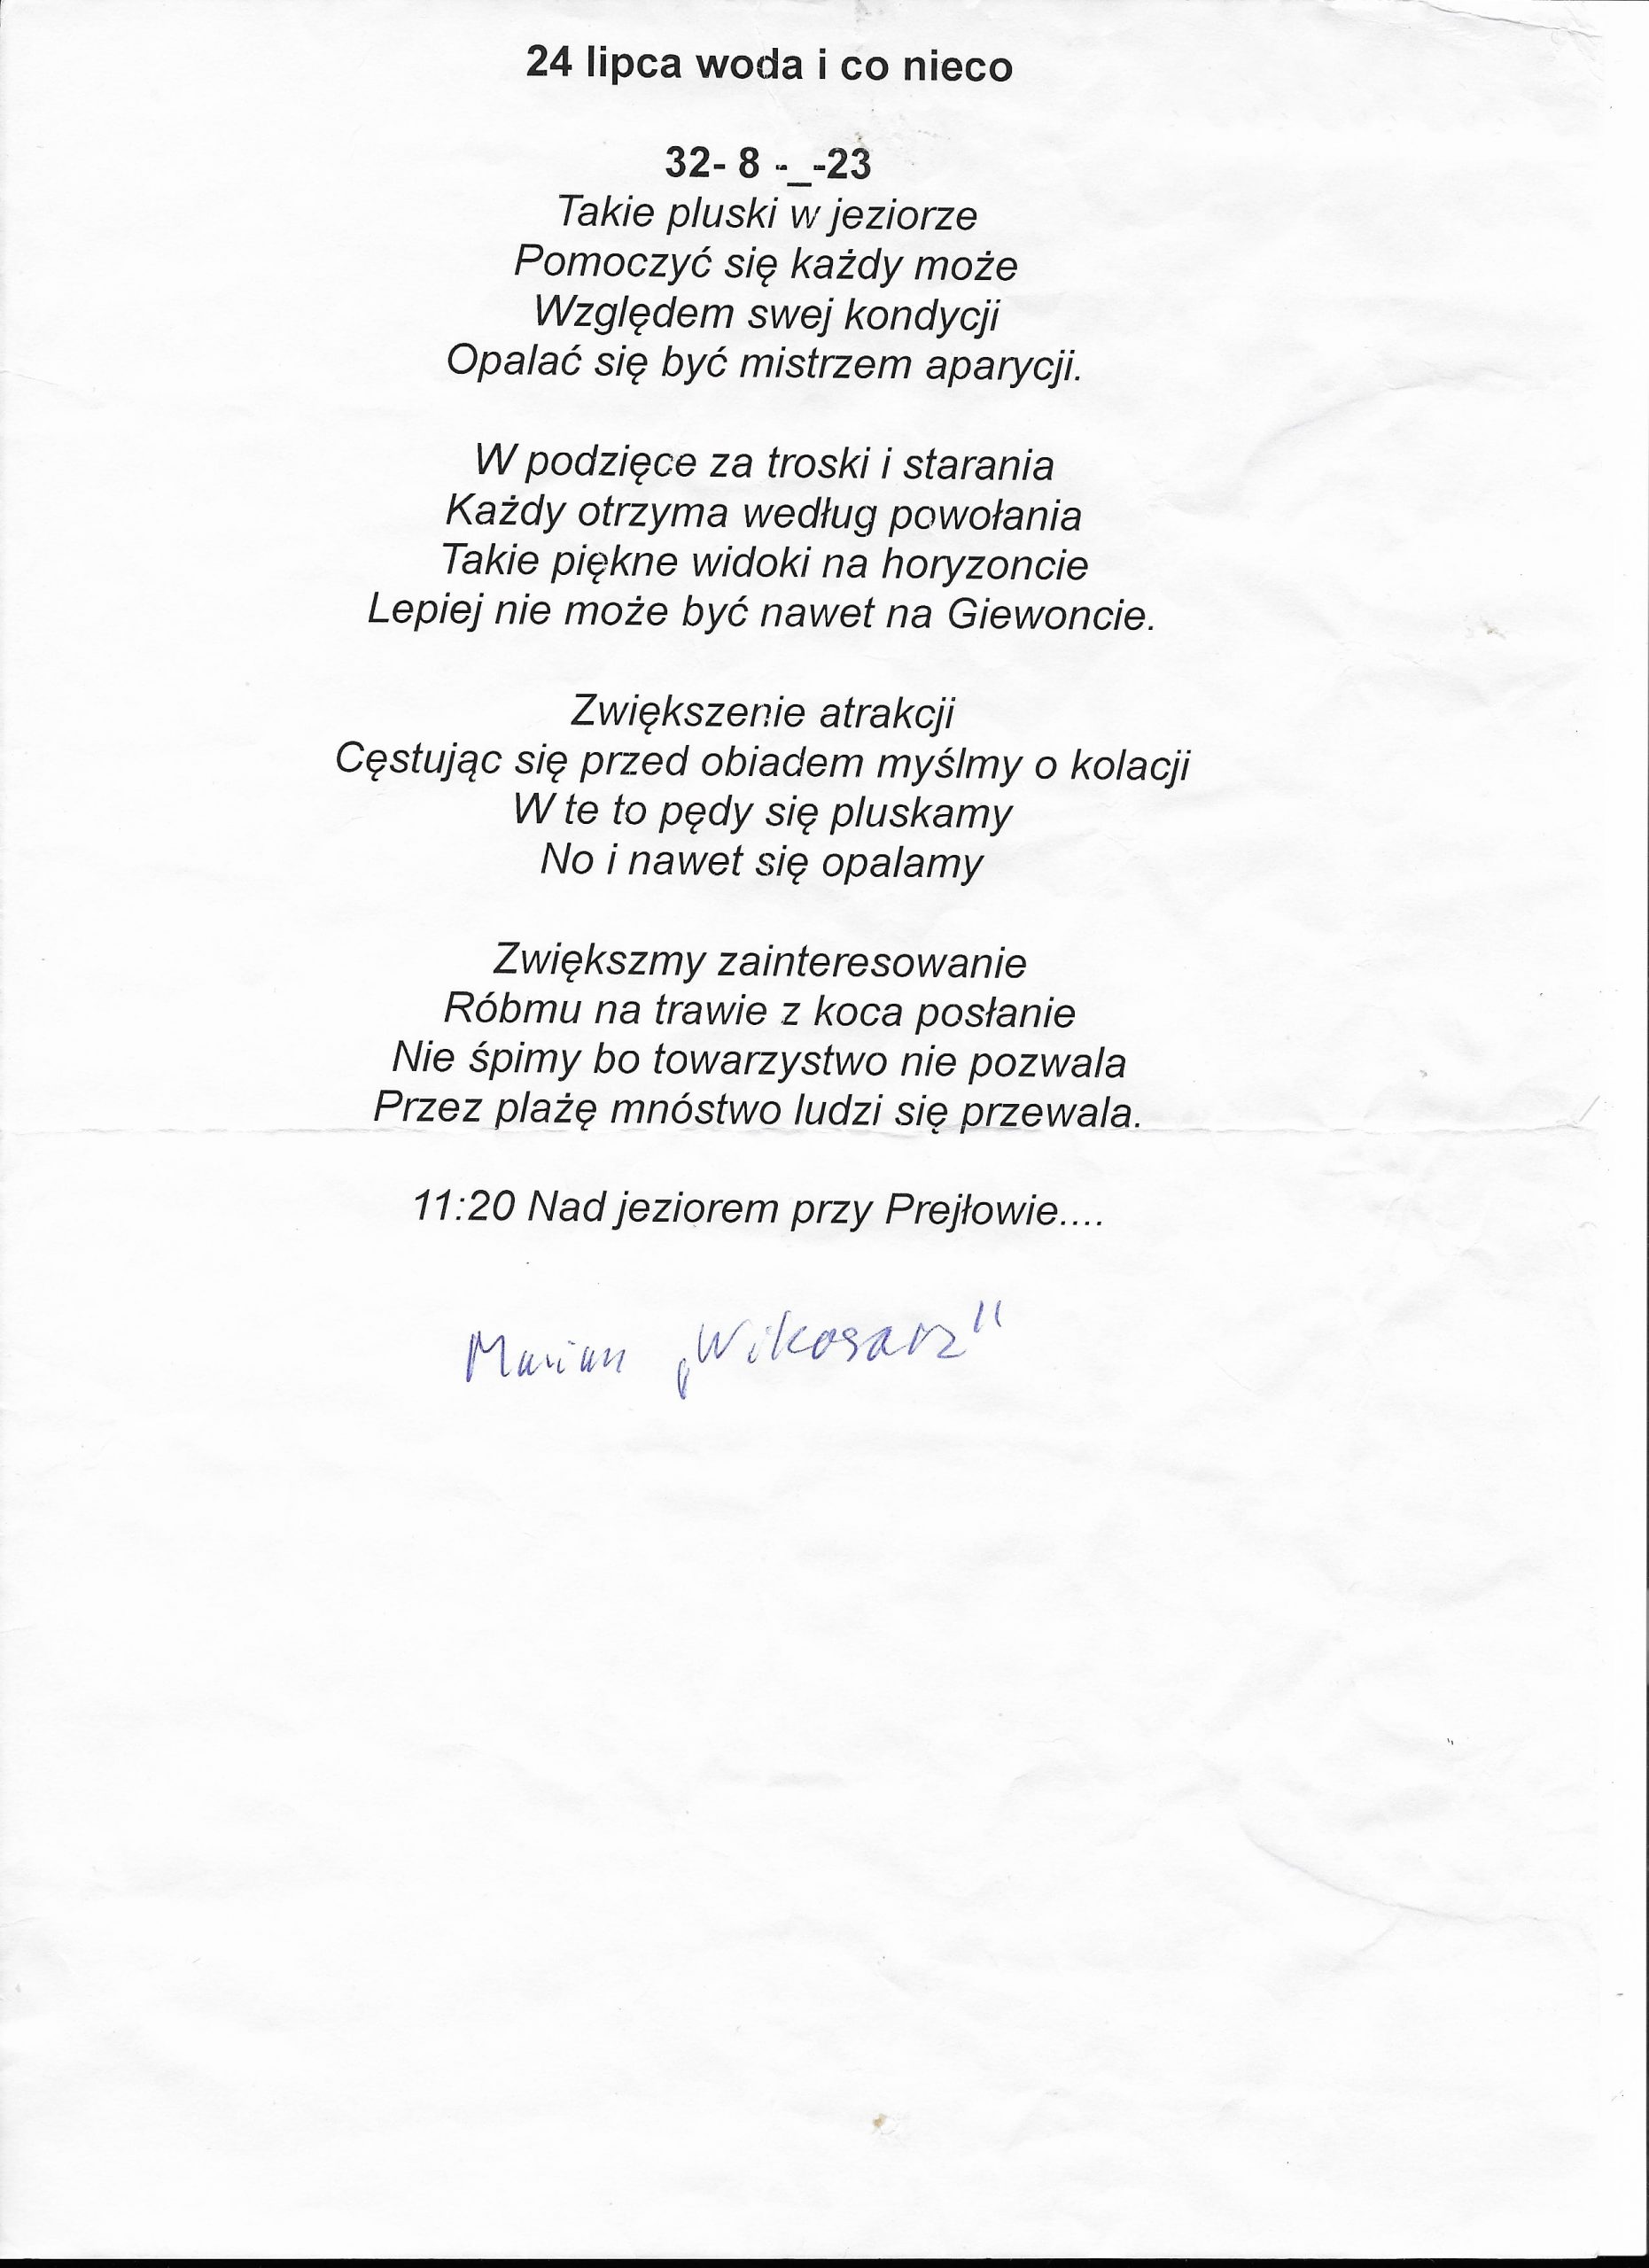 24 lipca woda i co nieco
32- 8 -_-23
Takie pluski w jeziorze
Pomoczyć się każdy może
Względem swej kondycji
Opalać się być mistrzem aparycji.
W podzięce za troski i starania
Każdy otrzyma według powołania
Takie piękne widoki na horyzoncie
Lepiej nie może być nawet na Giewoncie.
Zwiększenie atrakcji
Cęstując się przed obiadem myślmy o kolacji
W te to pędy się pluskamy
No i nawet się opalamy
Zwiększmy zainteresowanie
Róbmu na trawie z koca posłanie
Nie śpimy bo towarzystwo nie pozwala
Przez plażę mnóstwo ludzi się przewala.
11:20 Nad jeziorem przy Prejłowie....
Marian „Wikosarz"